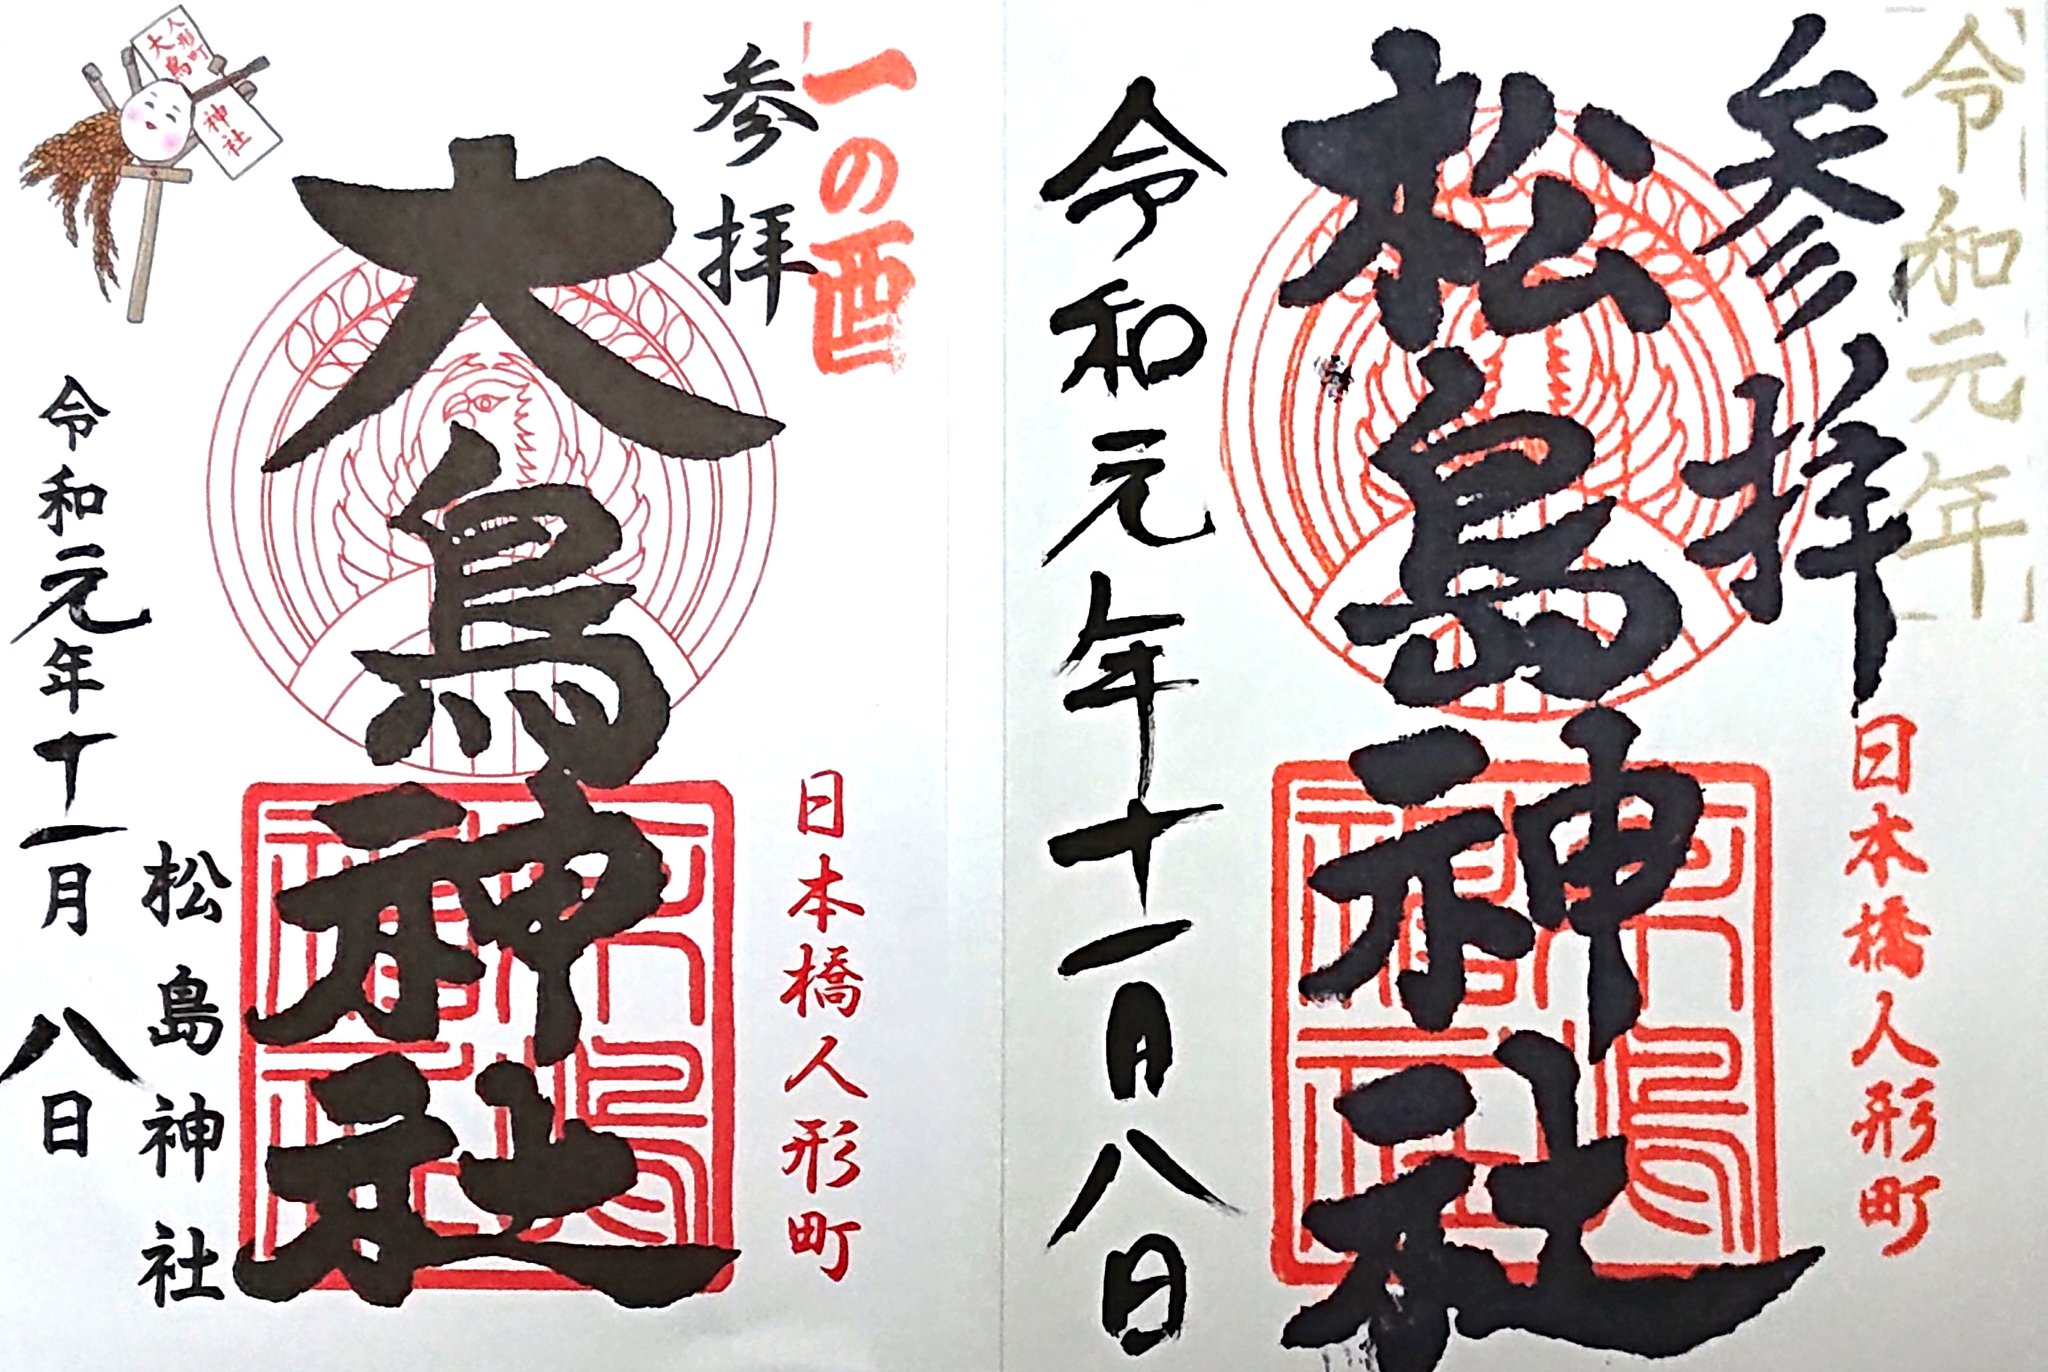 令和元年
参拝
日本橋人形町
松島神社
令和元年十一月八日
一の酉
参拝
日本橋人形町
大鳥神社
松島神社
令和元年十一月八日
人形町
大鳥
神社